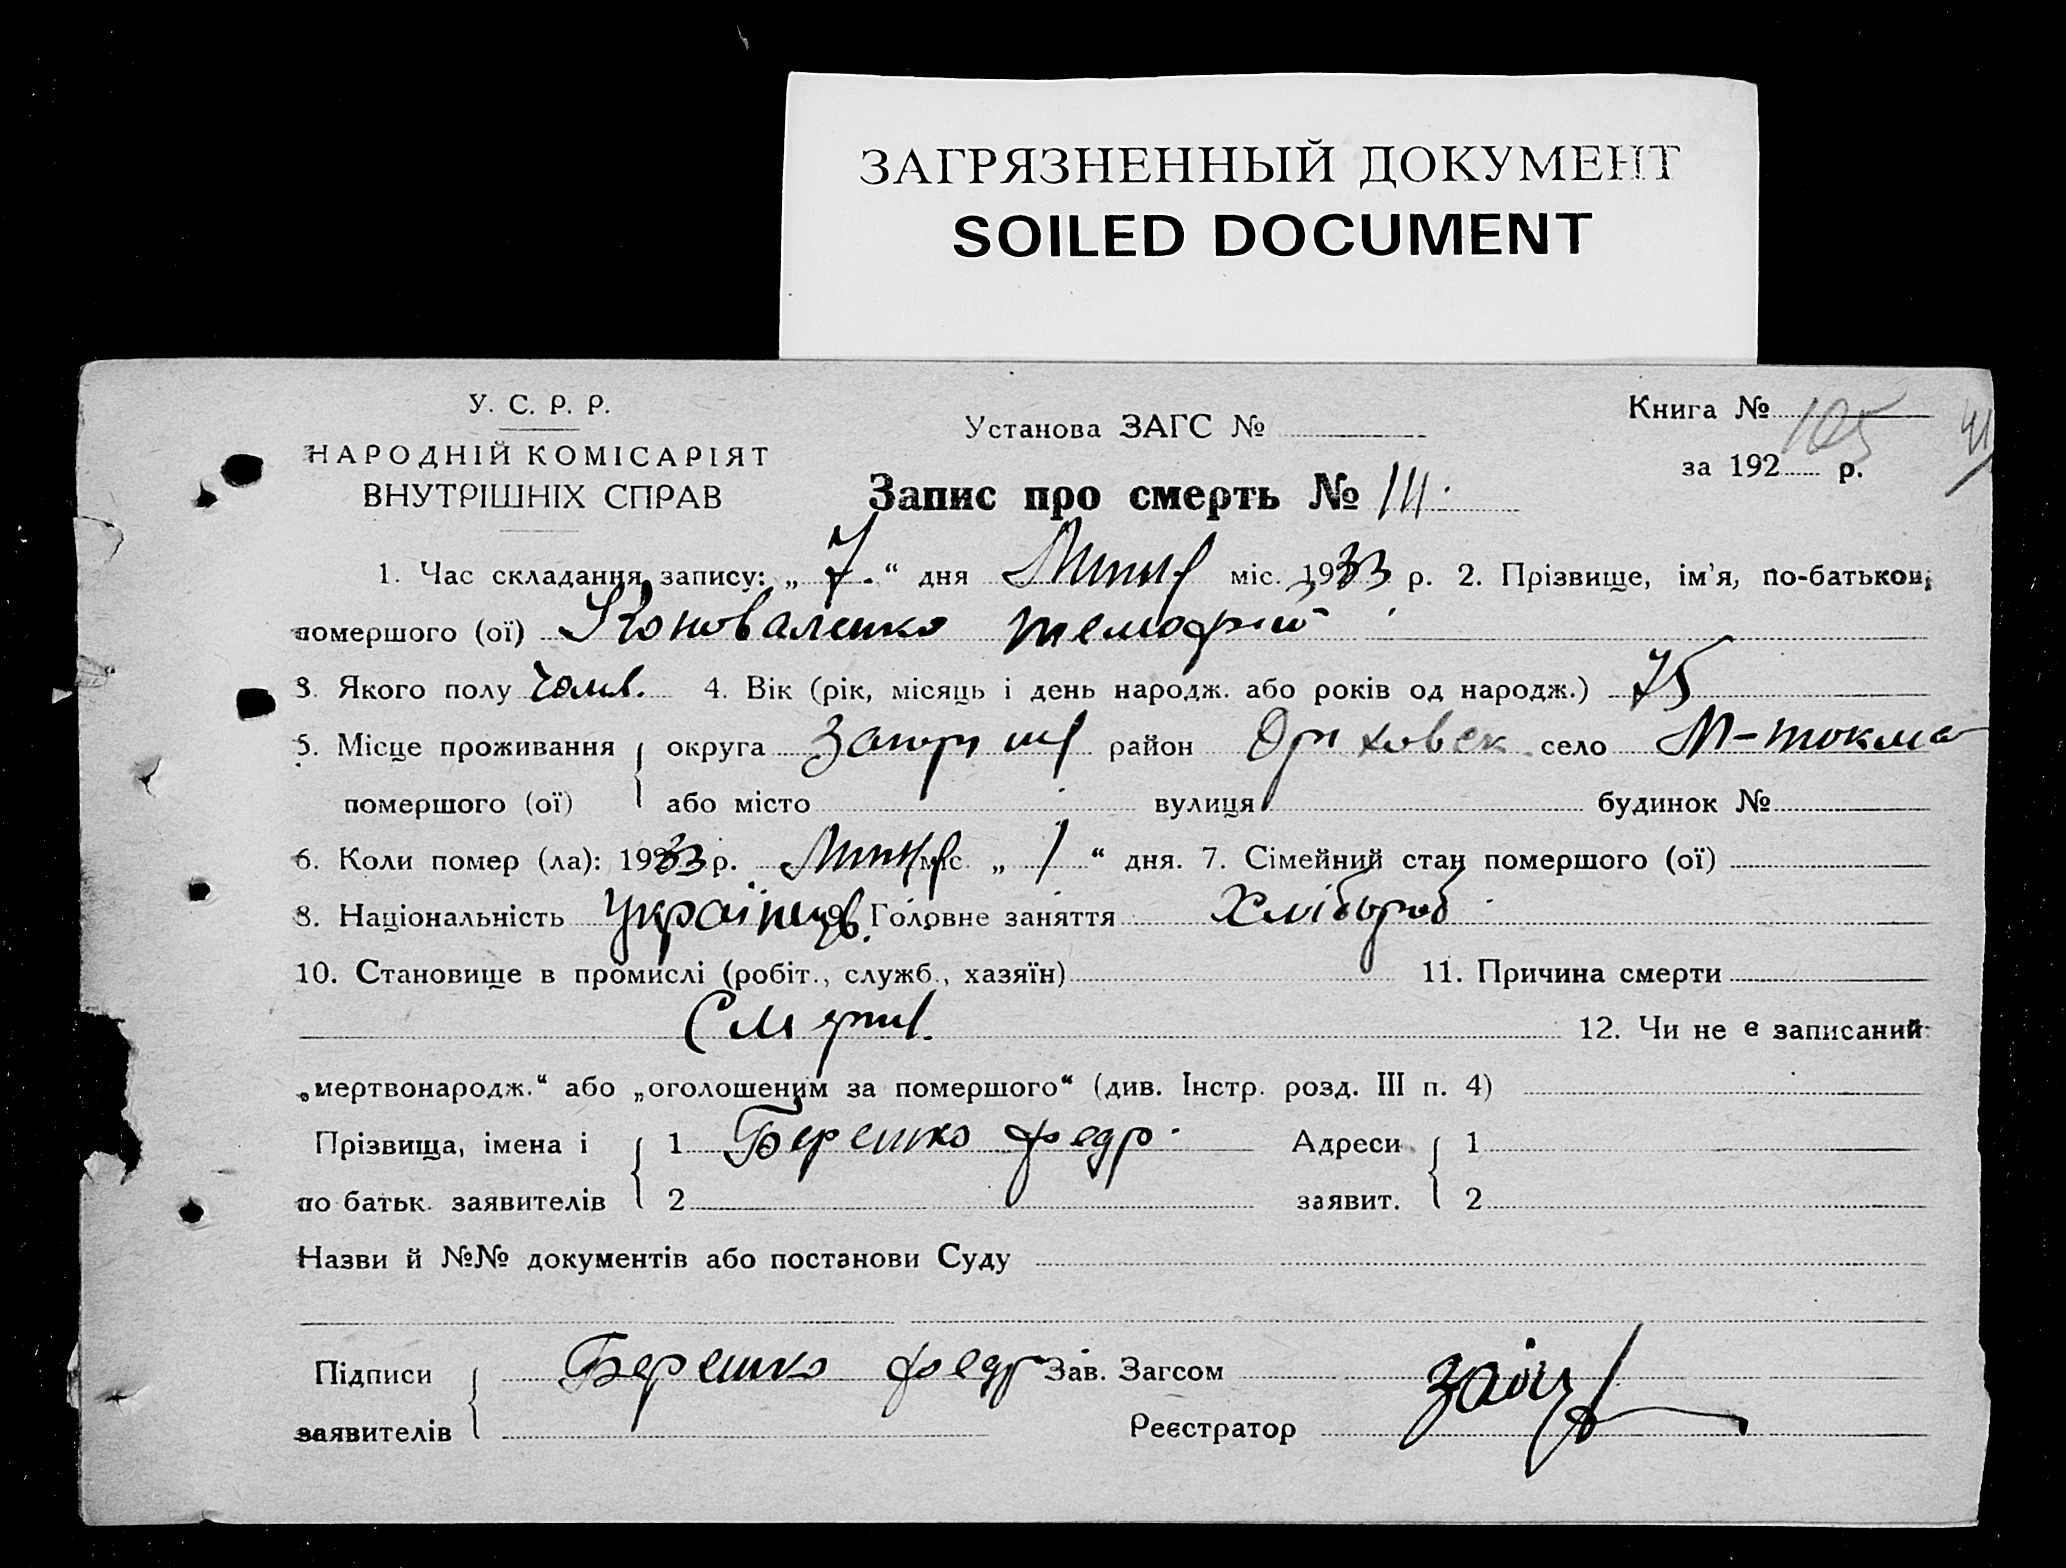 ЗАГРЯЗНЕННЫЙ ДОКУМЕНТ
SOILED DOCUMENT
У. С. Р. Р.
НАРОДНІЙ КОМІСАРІЯТ
ВНУТРІШНІХ СПРАВ
Установа ЗАГС №
Запис про смерть № 111.
Книга № 105
41
за 192 р.
1. Час складання запису: „ 7. “ дня міс. 1933 р. 2. Прізвище, ім'я, по-батькові,
помершого (ої) Коноваленко
3. Якого полу 4. Вік (рік, місяць і день народж. або років од народж.) 75
5. Місце проживання округа район Оріховск село М-токма
помершого (ої) або місто вулиця будинок №
6. Коли помер (ла): 1933 р. міс. „ 1 “ дня. 7. Сімейний стан помершого (ої)
8. Національність 9. Головне заняття Хлібороб
10. Становище в промислі (робіт., служб., хазяїн) 11. Причина смерти
12. Чи не є записаний
„мертвонародж.“ або „оголошеним за помершого“ (див. Інстр. розд. III п. 4)
Прізвища, імена і 1 Адреси 1
по батьк. заявителів 2 заявит. 2
Назви й №№ документів або постанови Суду
Підписи Зав. Загсом
заявителів Реєстратор